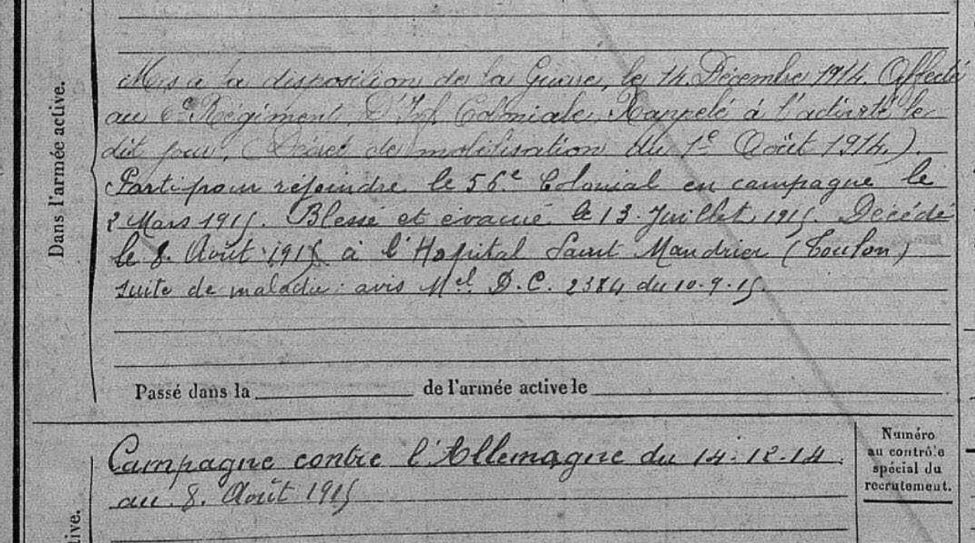 Dans l'armée active.
Mis à la disposition de la Guerre, le 14 Décembre 1914. Affecté
au 6e Régiment D'Inf. Coloniale. Rappelé à l'activité le
dit jour. (Décret de mobilisation du 1er Août 1914.)
Parti pour rejoindre le 56e Colonial en campagne le
2 Mars 1915. Blessé et évacué le 13 Juillet 1915. Décédé
le 8 Août 1915 à l'Hopital Saint Mandrier (Toulon)
suite de maladie. avis Mel D.C. 2384 du 10-9-15.
Passé dans la de l'armée active le
Campagne contre l'Allemagne du 14-12-14
au 8 Août 1915
Numéro
au contrôle
spécial du
recrutement.
tive.